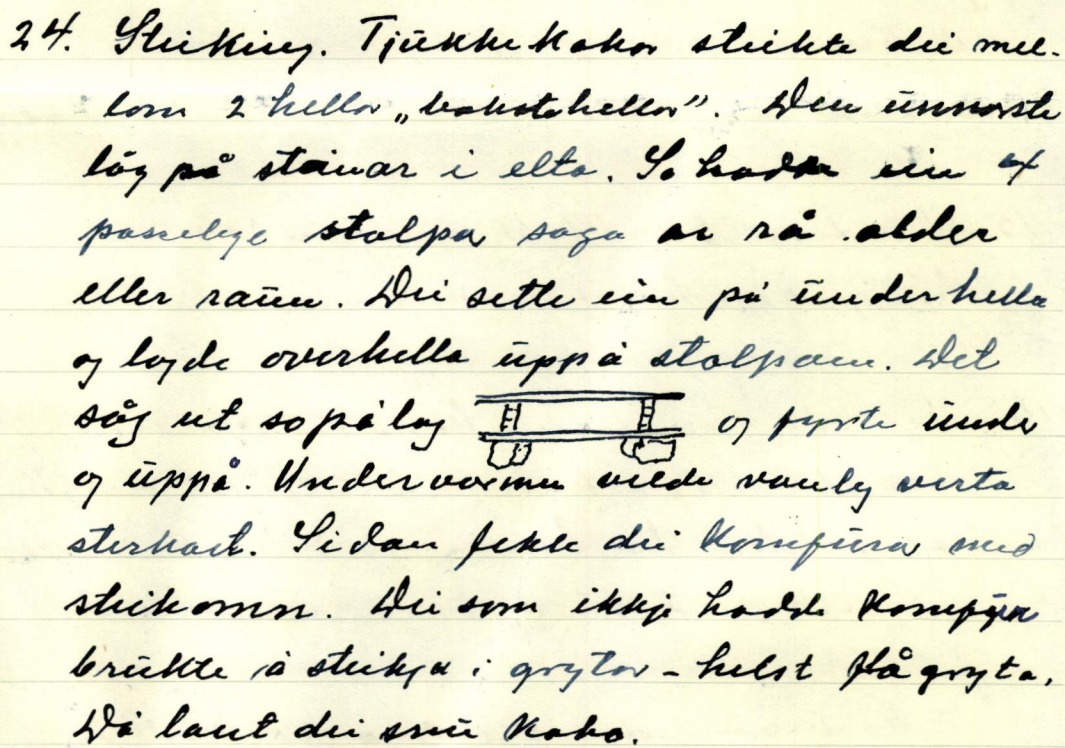 24. Steiking. Tjukke kakor steikte dei mel-
lom 2 hellor „bakstehellor". Den unnarste
låg på steinar i elta. So hadde ein 4
passelege stolpar saga av rå older
eller raun. Dei sette ein på underhella
og lagde overhella uppå stolpane. Det
såg ut so pålag og fyrte under
og uppå. Undervarmen vilde vanleg verta
sterkast. Sidan fekk dei komfyrar med
steikomn. Dei som ikkje hadde komfyr
brukte å steikja i grytor - helst flågryta.
Då laut dei snu kaka.